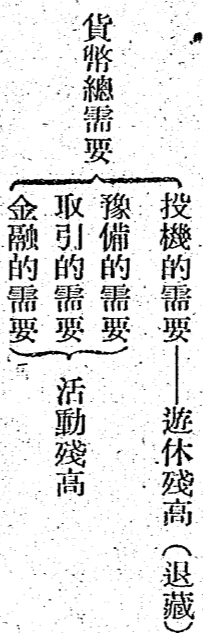 貨幣總需要
投機的需要——遊休殘高（退藏）
豫備的需要
取引的需要
金融的需要
活動殘高